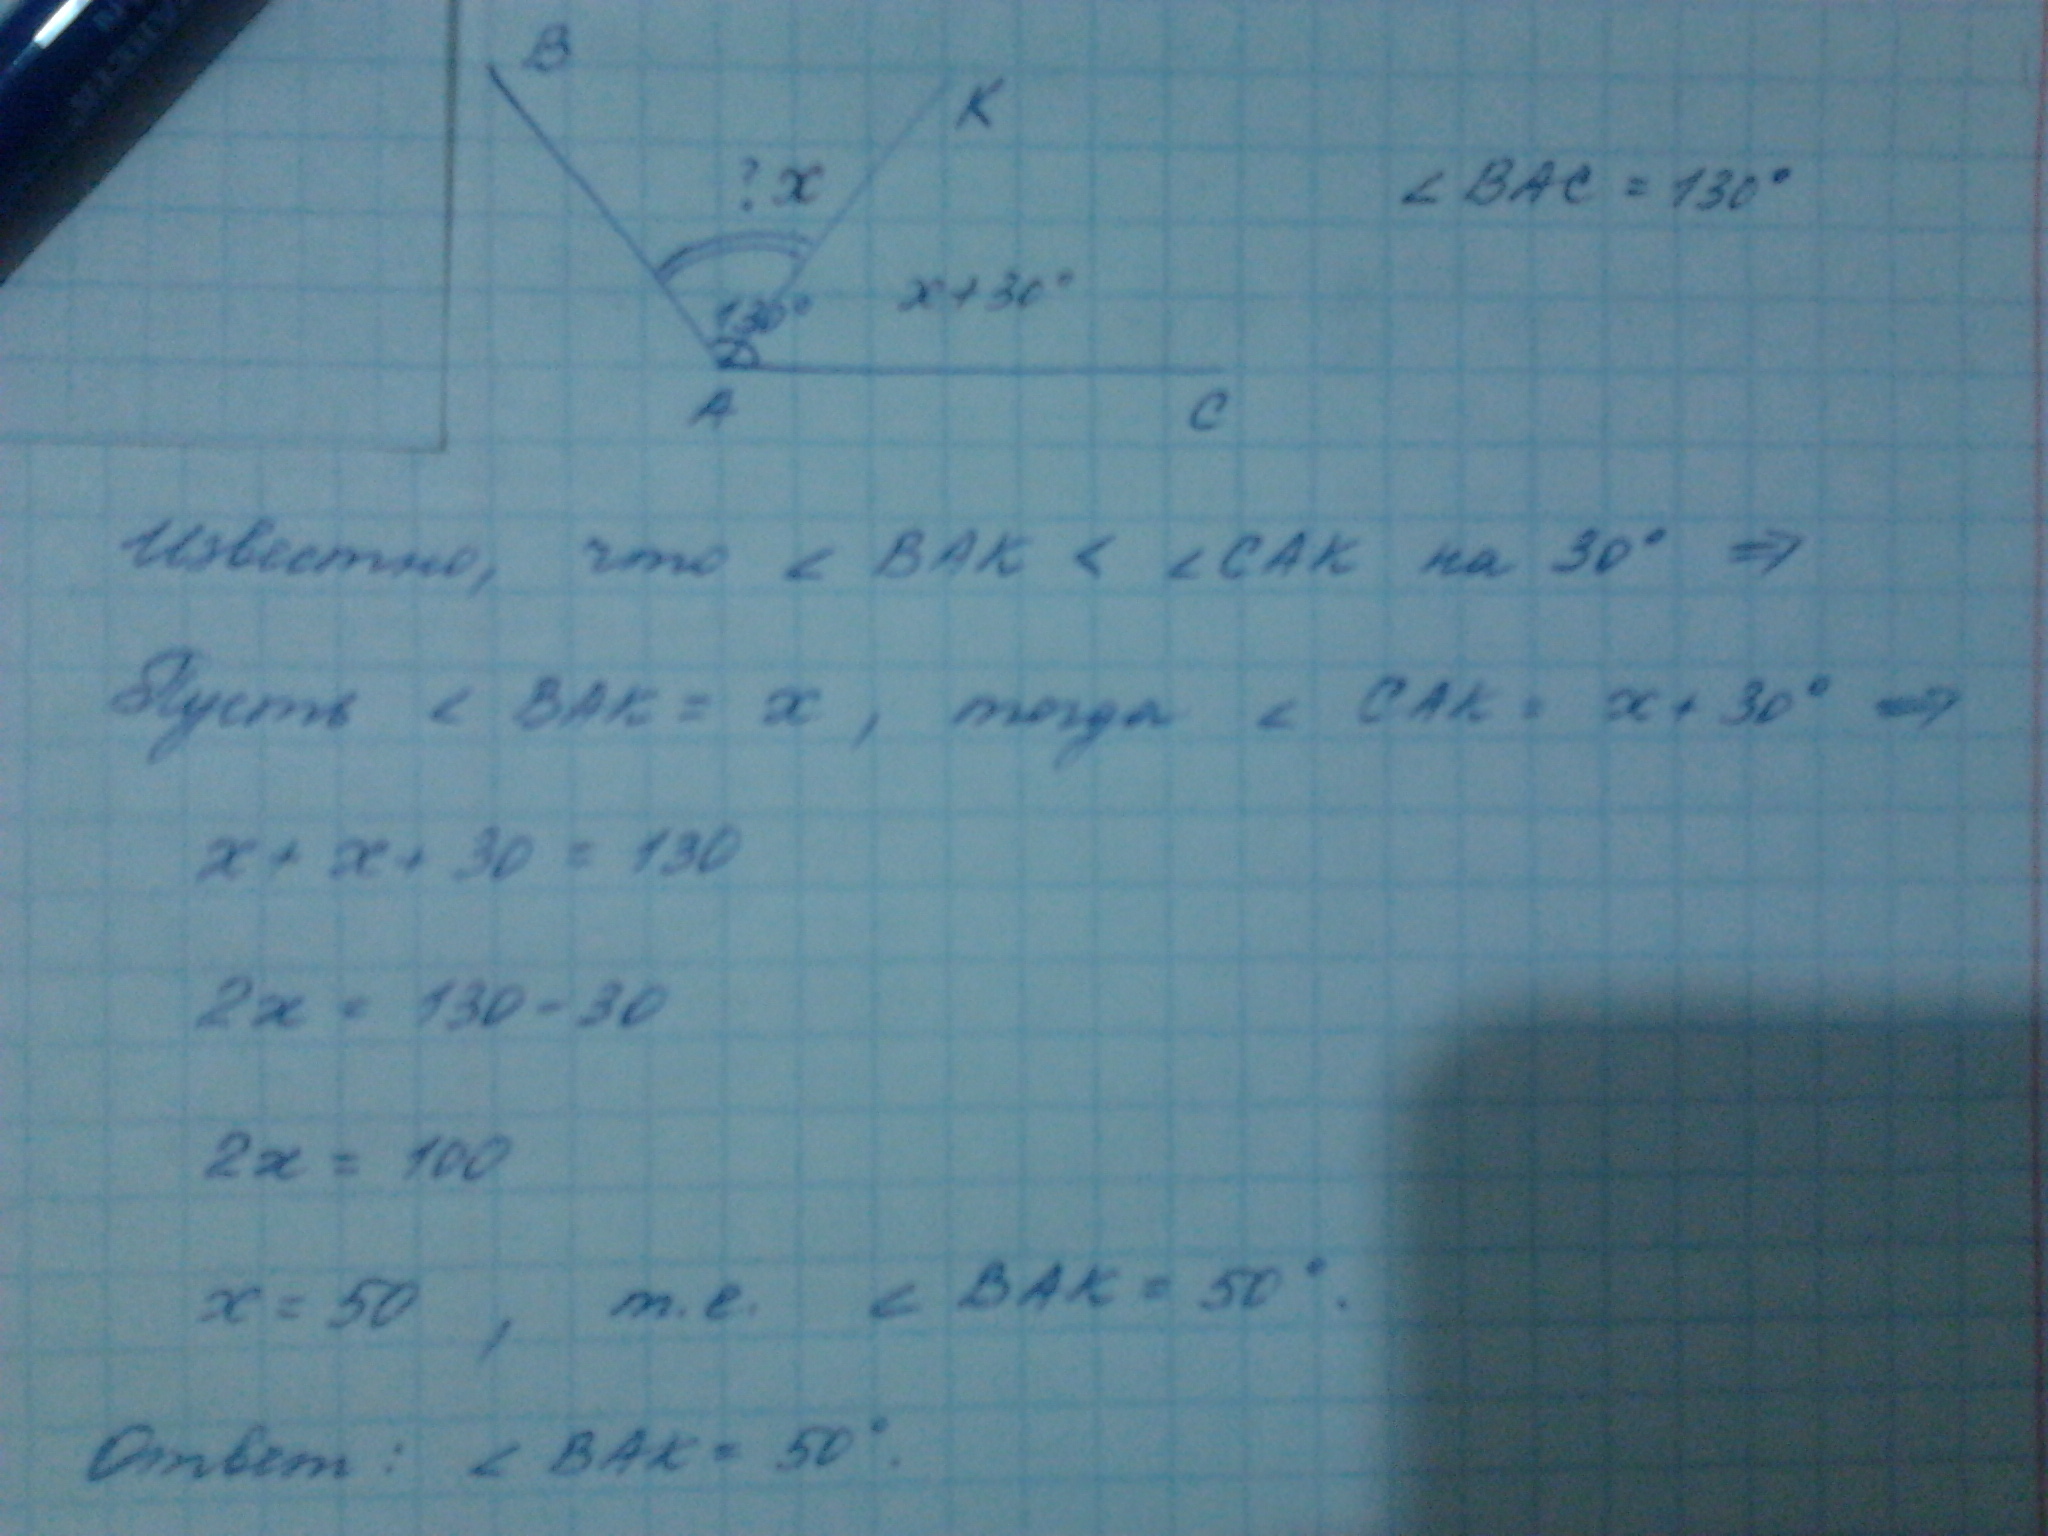 B
K
? x
∠ BAC = 130°
x+30°
130°
A
C
Известно, что ∠ BAK < ∠CAK на 30° ⇒
Пусть ∠ BAK = x , тогда ∠ CAK = x + 30° ⇒
x + x + 30 = 130
2x = 130 - 30
2x = 100
x = 50 , т.е. ∠ BAK = 50°.
Ответ: ∠ BAK = 50°.